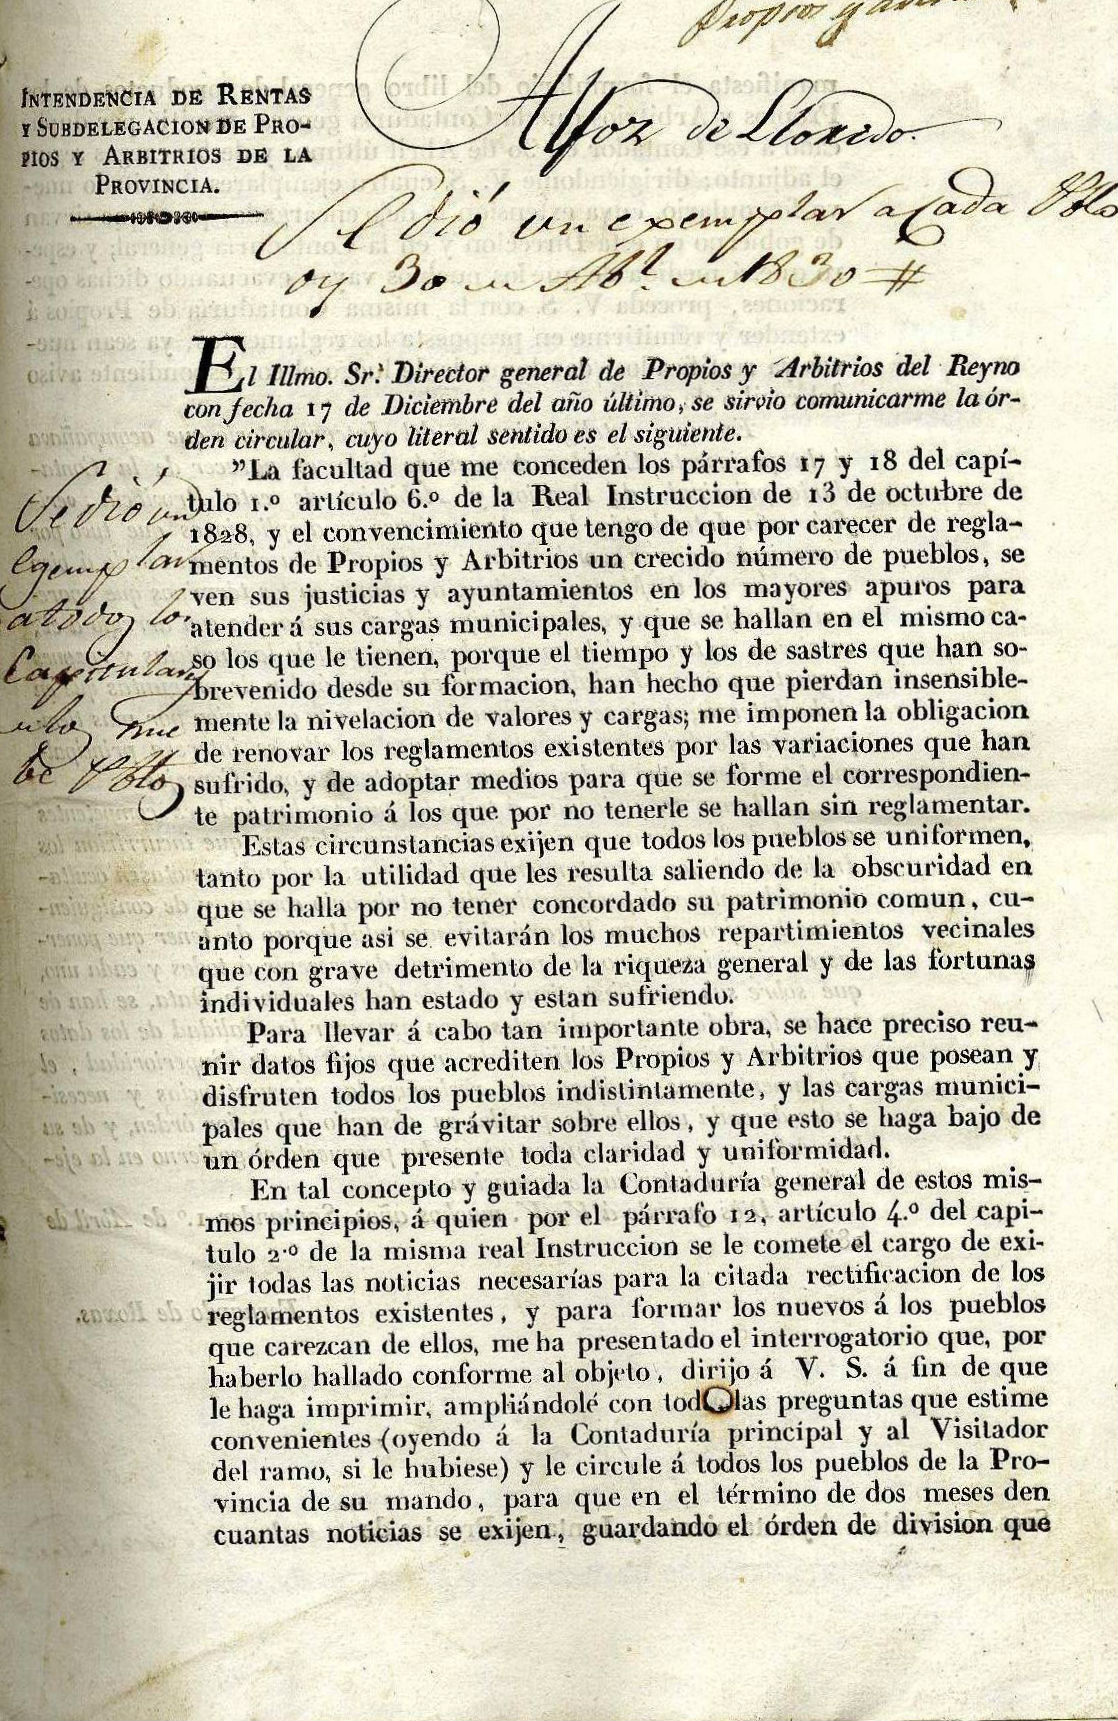 Propios y
Alfoz de Lloredo.
INTENDENCIA DE RENTAS
Y SUBDELEGACION DE PRO-
PIOS Y ARBITRIOS DE LA
PROVINCIA.
Se dió un exemplar a Cada Pblo
oy 30 de Abl. de 1830 #
El Illmo. Sr. Director general de Propios y Arbitrios del Reyno
con fecha 17 de Diciembre del año último, se sirvio comunicarme la ór-
den circular, cuyo literal sentido es el siguiente.
"La facultad que me conceden los párrafos 17 y 18 del capí-
tulo 1.º artículo 6.º de la Real Instruccion de 13 de octubre de
1828, y el convencimiento que tengo de que por carecer de regla-
mentos de Propios y Arbitrios un crecido número de pueblos, se
ven sus justicias y ayuntamientos en los mayores apuros para
atender á sus cargas municipales, y que se hallan en el mismo ca-
so los que le tienen, porque el tiempo y los de sastres que han so-
brevenido desde su formacion, han hecho que pierdan insensible-
mente la nivelacion de valores y cargas; me imponen la obligacion
de renovar los reglamentos existentes por las variaciones que han
sufrido, y de adoptar medios para que se forme el correspondien-
te patrimonio á los que por no tenerle se hallan sin reglamentar.
Estas circunstancias exijen que todos los pueblos se uniformen,
tanto por la utilidad que les resulta saliendo de la obscuridad en
que se halla por no tener concordado su patrimonio comun, cu-
anto porque asi se evitarán los muchos repartimientos vecinales
que con grave detrimento de la riqueza general y de las fortunas
individuales han estado y estan sufriendo.
Para llevar á cabo tan importante obra, se hace preciso reu-
nir datos fijos que acrediten los Propios y Arbitrios que posean y
disfruten todos los pueblos indistintamente, y las cargas munici-
pales que han de grávitar sobre ellos, y que esto se haga bajo de
un órden que presente toda claridad y uniformidad.
En tal concepto y guiada la Contaduría general de estos mis-
mos principios, á quien por el párrafo 12, artículo 4.º del capi-
tulo 2.º de la misma real Instruccion se le comete el cargo de exi-
jir todas las noticias necesarías para la citada rectificacion de los
reglamentos existentes, y para formar los nuevos á los pueblos
que carezcan de ellos, me ha presentado el interrogatorio que, por
haberlo hallado conforme al objeto, dirijo á V. S. á fin de que
le haga imprimir, ampliándolé con tod las preguntas que estime
convenientes (oyendo á la Contaduría principal y al Visitador
del ramo, si le hubiese) y le circule á todos los pueblos de la Pro-
vincia de su mando, para que en el término de dos meses den
cuantas noticias se exijen, guardando el órden de division que
Se dió un
egemplar
a todos los
Capitulares
nue
be Pblos